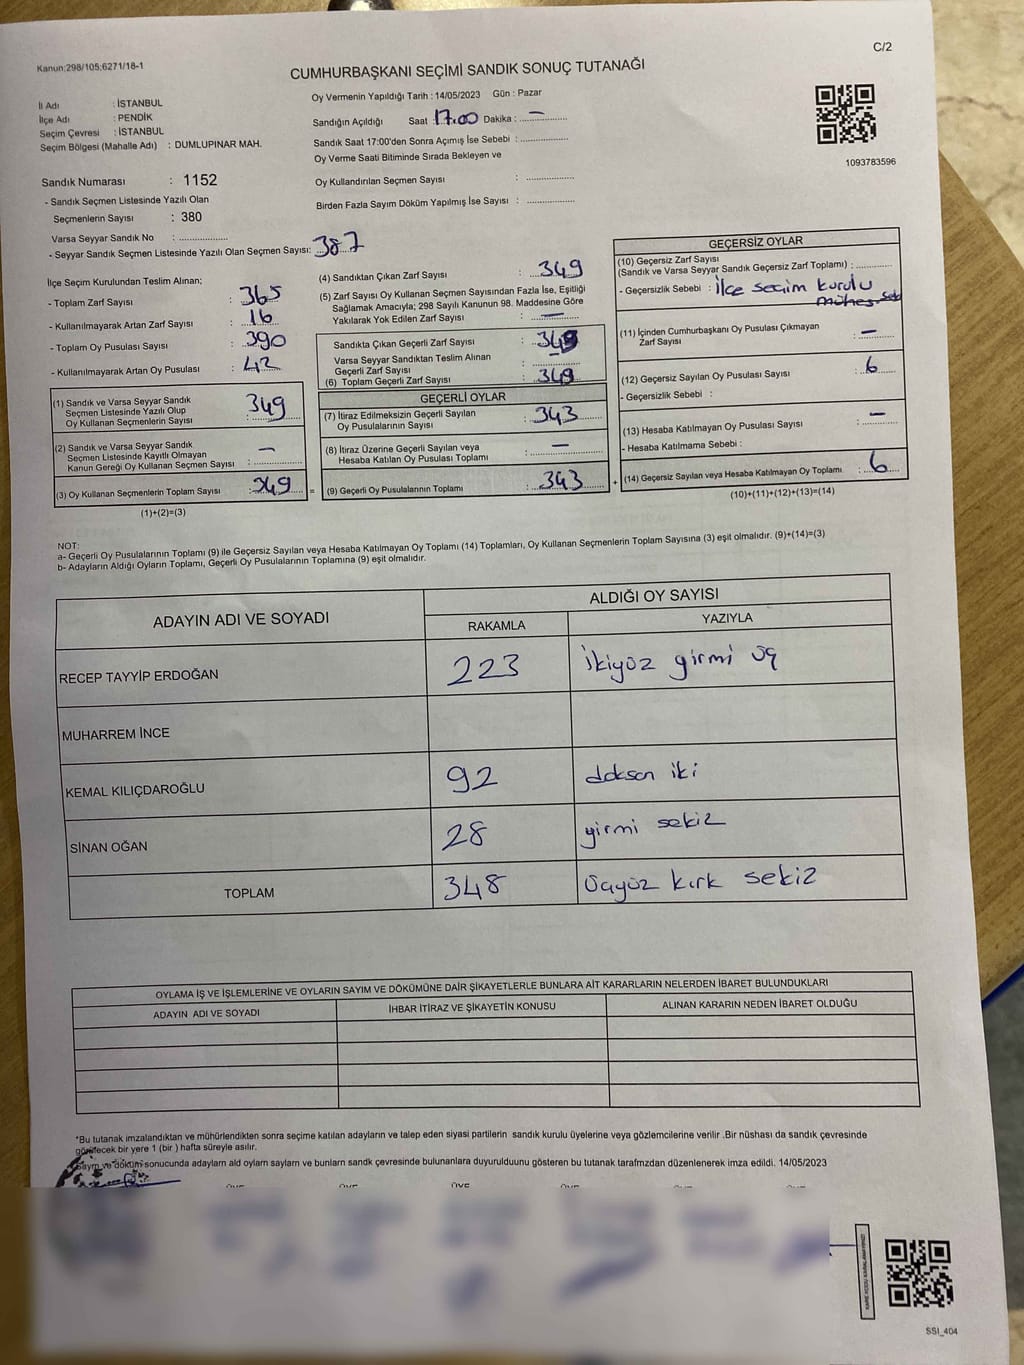 C/2
Kanun:298/105;6271/18-1
CUMHURBAŞKANI SEÇİMİ SANDIK SONUÇ TUTANAĞI
İl Adı : İSTANBUL
İlçe Adı : PENDİK
Seçim Çevresi : İSTANBUL
Seçim Bölgesi (Mahalle Adı) : DUMLUPINAR MAH.
Oy Vermenin Yapıldığı Tarih : 14/05/2023 Gün : Pazar
Sandığın Açıldığı Saat : 17.00 Dakika : —
Sandık Saat 17:00'den Sonra Açımış İse Sebebi :
Oy Verme Saati Bitiminde Sırada Bekleyen ve
Oy Kullandırılan Seçmen Sayısı :
Birden Fazla Sayım Döküm Yapılmış İse Sayısı :
1093783596
Sandık Numarası : 1152
- Sandık Seçmen Listesinde Yazılı Olan
Seçmenlerin Sayısı : 380
Varsa Seyyar Sandık No :
- Seyyar Sandık Seçmen Listesinde Yazılı Olan Seçmen Sayısı: 387
İlçe Seçim Kurulundan Teslim Alınan;
- Toplam Zarf Sayısı : 365
- Kullanılmayarak Artan Zarf Sayısı : 16
- Toplam Oy Pusulası Sayısı : 390
- Kullanılmayarak Artan Oy Pusulası : 42
(1) Sandık ve Varsa Seyyar Sandık
Seçmen Listesinde Yazılı Olup
Oy Kullanan Seçmenlerin Sayısı : 349
(2) Sandık ve Varsa Seyyar Sandık
Seçmen Listesinde Kayıtlı Olmayan
Kanun Gereği Oy Kullanan Seçmen Sayısı : —
(3) Oy Kullanan Seçmenlerin Toplam Sayısı : 349
(1)+(2)=(3)
(4) Sandıktan Çıkan Zarf Sayısı : 349
(5) Zarf Sayısı Oy Kullanan Seçmen Sayısından Fazla İse, Eşitliği
Sağlamak Amacıyla; 298 Sayılı Kanunun 98. Maddesine Göre
Yakılarak Yok Edilen Zarf Sayısı : —
Sandıkta Çıkan Geçerli Zarf Sayısı : 349
Varsa Seyyar Sandıktan Teslim Alınan
Geçerli Zarf Sayısı :
(6) Toplam Geçerli Zarf Sayısı : 349
GEÇERLİ OYLAR
(7) İtiraz Edilmeksizin Geçerli Sayılan
Oy Pusulalarının Sayısı : 343
(8) İtiraz Üzerine Geçerli Sayılan veya
Hesaba Katılan Oy Pusulası Toplamı : —
= (9) Geçerli Oy Pusulalarının Toplamı : 343 +
GEÇERSİZ OYLAR
(10) Geçersiz Zarf Sayısı
(Sandık ve Varsa Seyyar Sandık Geçersiz Zarf Toplamı) :
- Geçersizlik Sebebi : ilçe seçim kurulu
(11) İçinden Cumhurbaşkanı Oy Pusulası Çıkmayan
Zarf Sayısı : —
(12) Geçersiz Sayılan Oy Pusulası Sayısı : 6
- Geçersizlik Sebebi :
(13) Hesaba Katılmayan Oy Pusulası Sayısı : —
- Hesaba Katılmama Sebebi :
(14) Geçersiz Sayılan veya Hesaba Katılmayan Oy Toplamı : 6
(10)+(11)+(12)+(13)=(14)
NOT:
a- Geçerli Oy Pusulalarının Toplamı (9) ile Geçersiz Sayılan veya Hesaba Katılmayan Oy Toplamı (14) Toplamları, Oy Kullanan Seçmenlerin Toplam Sayısına (3) eşit olmalıdır. (9)+(14)=(3)
b- Adayların Aldığı Oyların Toplamı, Geçerli Oy Pusulalarının Toplamına (9) eşit olmalıdır.
ADAYIN ADI VE SOYADI
ALDIĞI OY SAYISI
RAKAMLA YAZIYLA
RECEP TAYYİP ERDOĞAN 223 ikiyüz girmi üç
MUHARREM İNCE
KEMAL KILIÇDAROĞLU 92 doksan iki
SİNAN OĞAN 28 yirmi sekiz
TOPLAM 348 üçyüz kırk sekiz
OYLAMA İŞ VE İŞLEMLERİNE VE OYLARIN SAYIM VE DÖKÜMÜNE DAİR ŞİKAYETLERLE BUNLARA AİT KARARLARIN NELERDEN İBARET BULUNDUKLARI
ADAYIN ADI VE SOYADI İHBAR İTİRAZ VE ŞİKAYETİN KONUSU ALINAN KARARIN NEDEN İBARET OLDUĞU
*Bu tutanak imzalandıktan ve mühürlendikten sonra seçime katılan adayların ve talep eden siyasi partilerin sandık kurulu üyelerine veya gözlemcilerine verilir .Bir nüshası da sandık çevresinde
görülecek bir yere 1 (bir ) hafta süreyle asılır.
Sayım ve döküm sonucunda adayların ald oyların sayları ve bunların sandk çevresinde bulunanlara duyurulduunu gösteren bu tutanak tarafmzdan düzenlenerek imza edildi. 14/05/2023
SSI_404